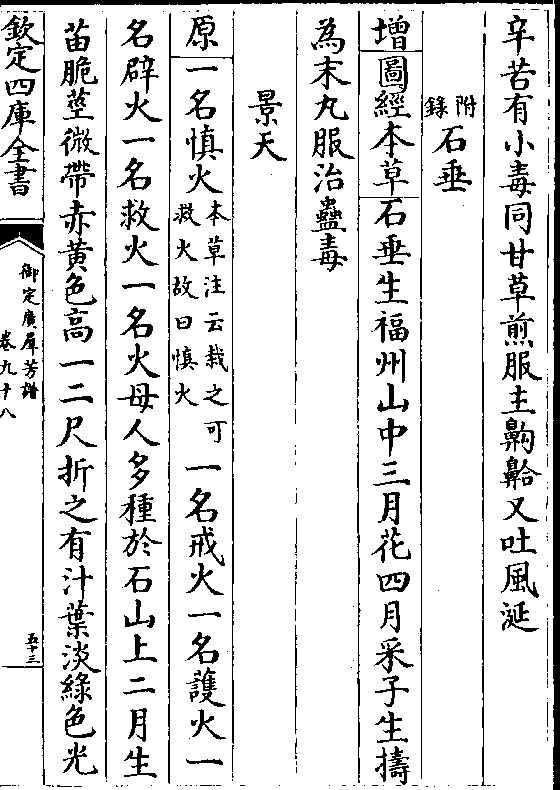 辛苦有小毒同甘草煎服主齁䶎又吐風涎
附錄石垂
增圖經本草石垂生福州山中三月花四月采子生擣
為末丸服治蠱毒
景天
原一名慎火本草注云栽之可救火故曰慎火一名戒火一名護火一
名辟火一名救火一名火母人多種於石山上二月生
苗脆莖微帶赤黃色高一二尺折之有汁葉淡綠色光
欽定四庫全書
御定廣羣芳譜
卷九十八
五十三